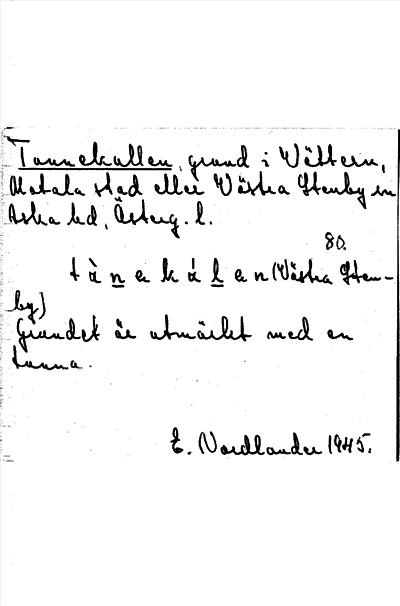 Tunnekullen, grund i Vättern,
Motala stad eller Västra Stenby sn
Aska hd, Österg. l.
80.
t ù n e k ù l e n (Västra Sten-
by)
Grundet är utmärkt med en
tunna.
E. Nordlander 1945.